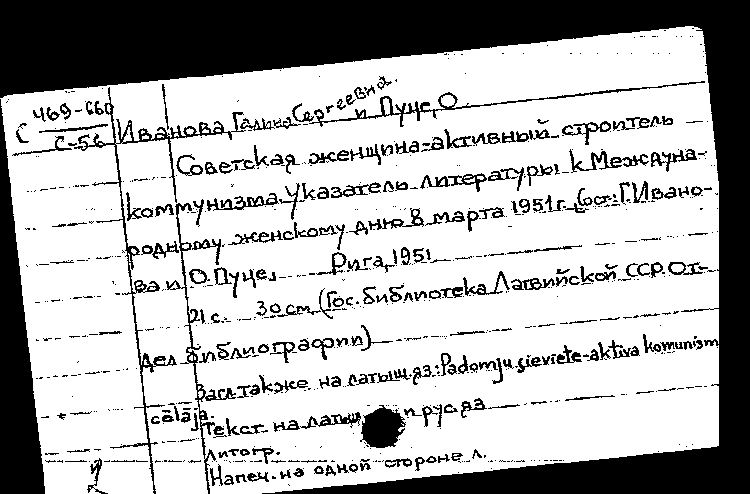 С 469-660
С-56
Иванова, Галина Сергеевна и Пуце, О.
Советская женщина-активный строитель
коммунизма. Указатель литературы к Междуна-
родному женскому дню 8 марта 1951г. Сост.: Г. Ивано-
ва и О. Пуце.
Рига, 1951
21 с. 30 см. (Гос. библиотека Латвийской ССР. От-
дел библиографии)
Загл. также на латыш. яз.: Padomju sieviete-aktīva komunism
cēlāja.
Текст на латыш. и рус. яз
Литогр.
Напеч. на одной стороне л.